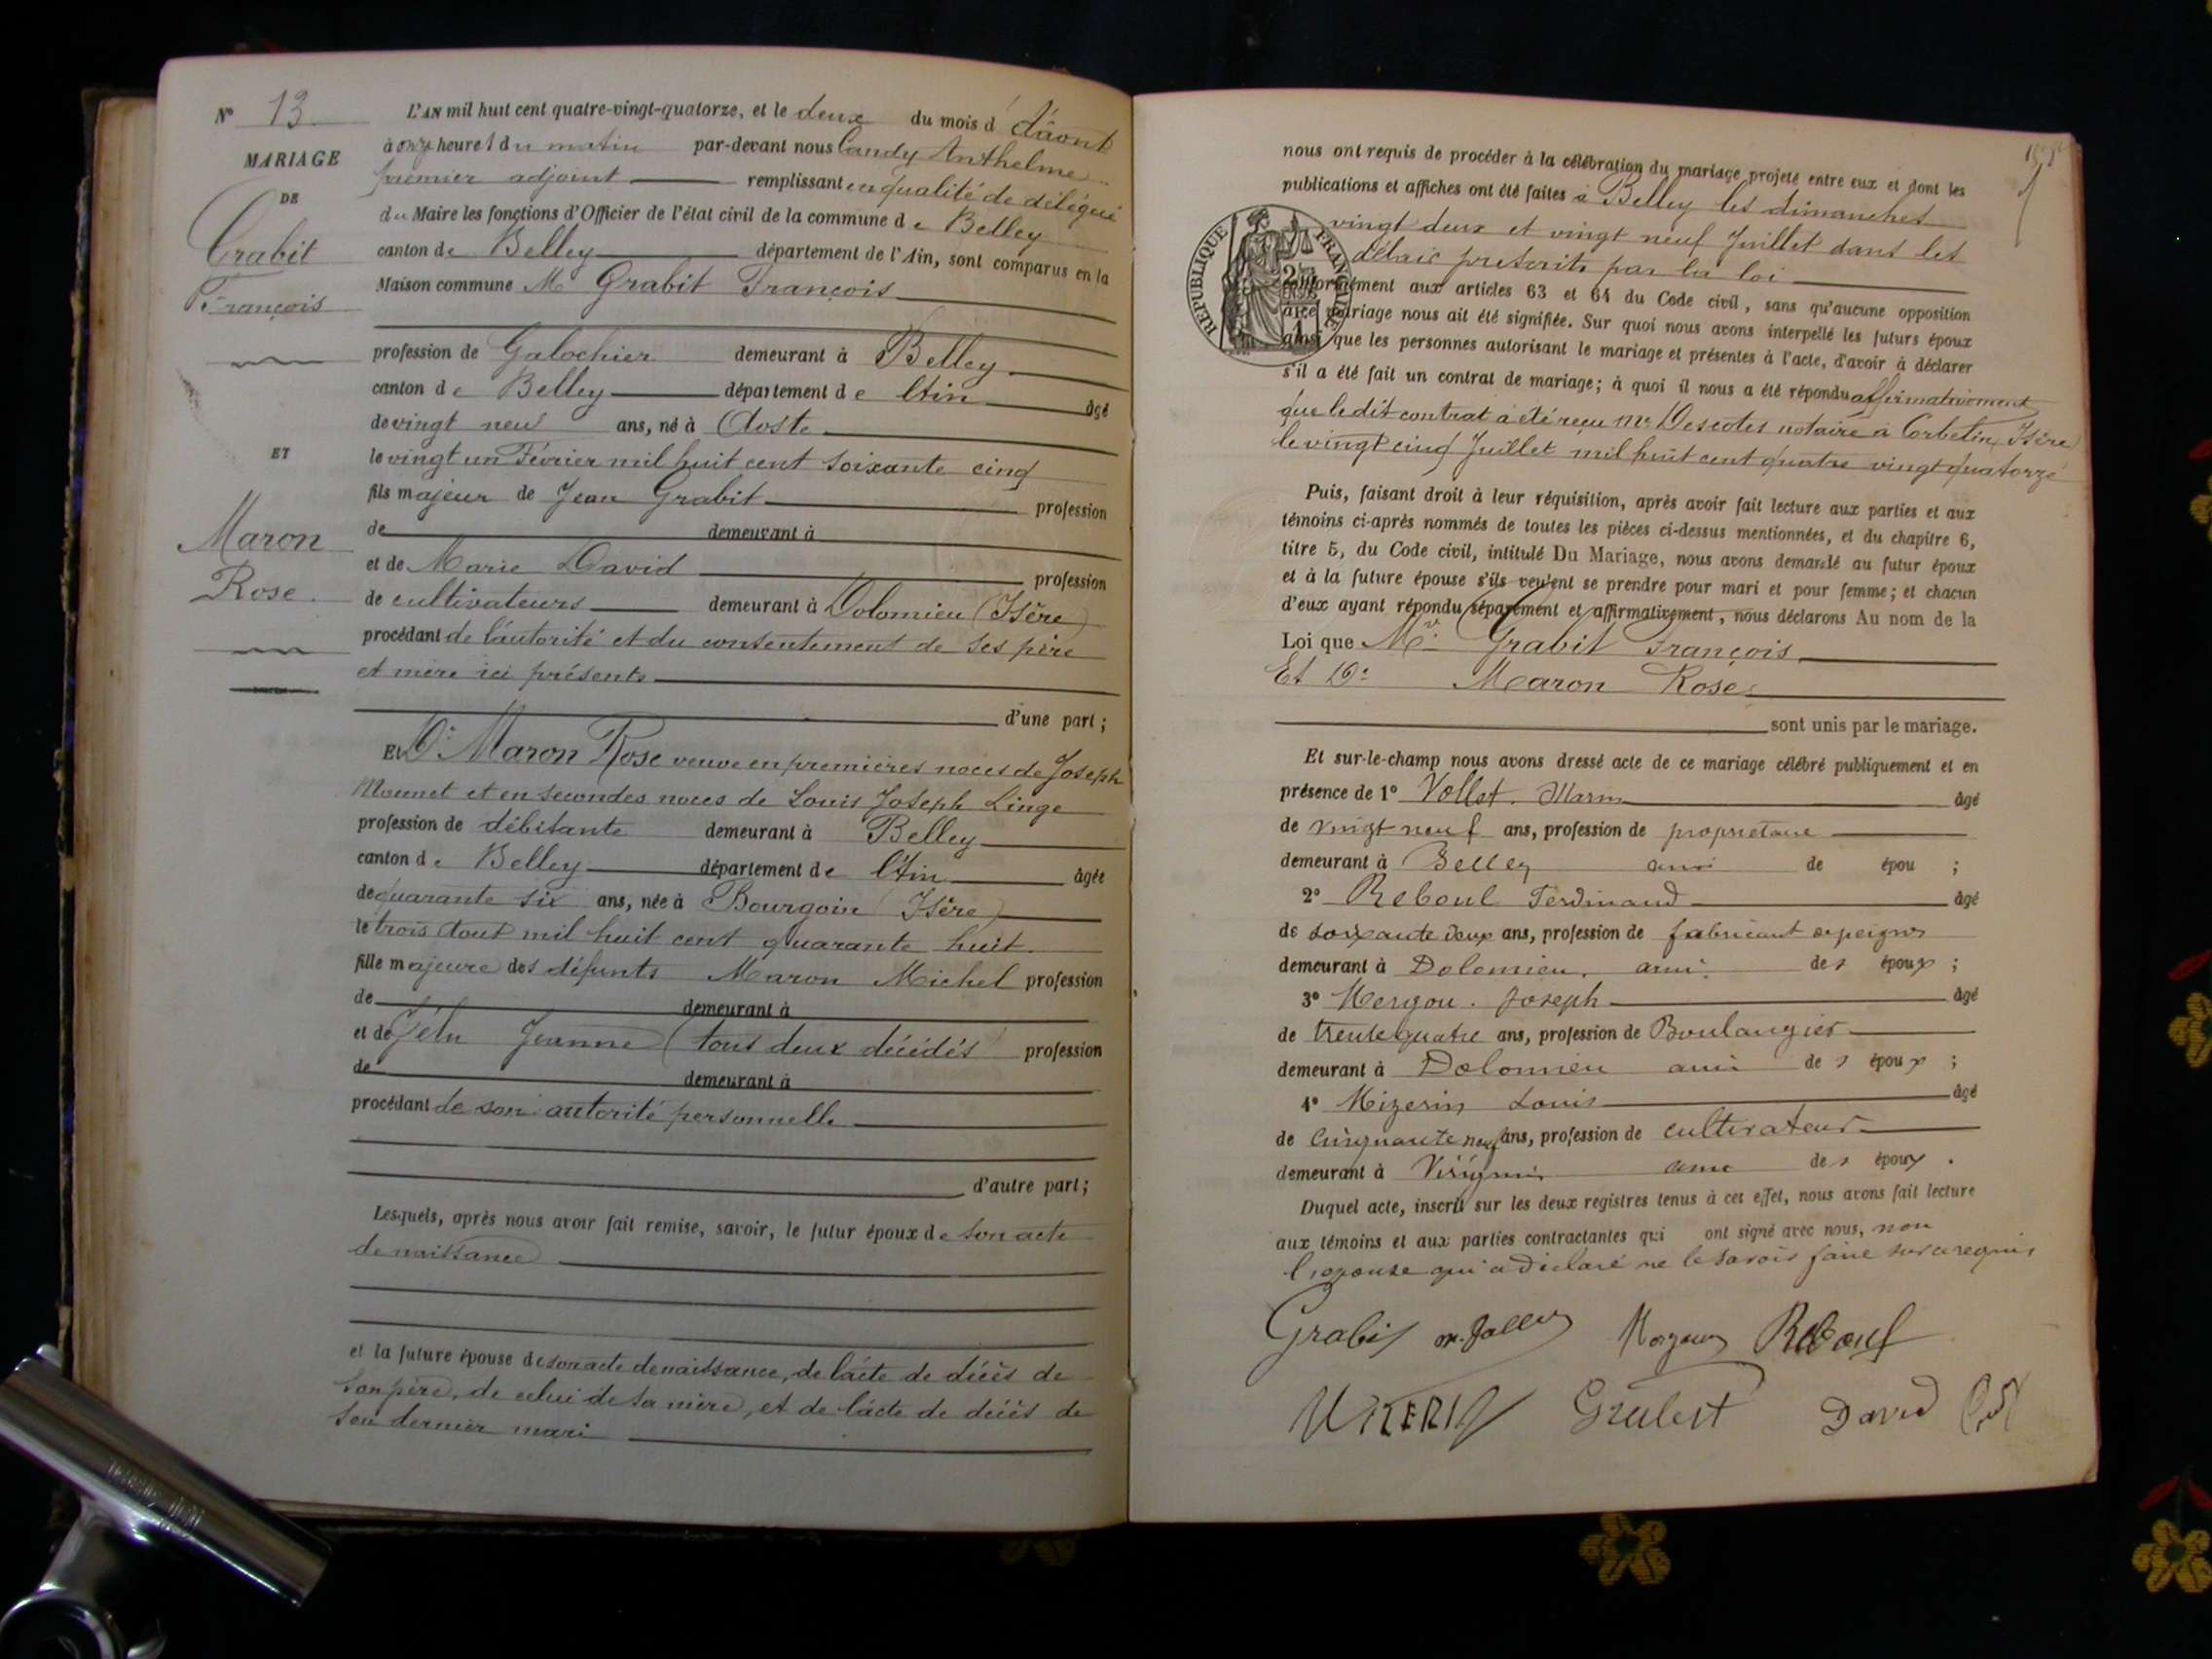 N° 13
MARIAGE
DE
Grabit
François
ET
Maron
Rose
L'AN mil huit cent quatre-vingt-quatorze, et le deux du mois d d'août
à onze heures du matin par-devant nous Candy Anthelme
premier adjoint remplissant en qualité de délégué
du Maire les fonctions d'Officier de l'état civil de la commune de Belley
canton de Belley département de l'Ain, sont comparus en la
Maison commune Mr Grabit François
profession de Galochier demeurant à Belley
canton de Belley département de l'Ain âgé
de vingt neuf ans, né à Aoste
le vingt un Février mil huit cent soixante cinq
fils majeur de Jean Grabit profession
de demeurant à
et de Marie David profession
de cultivateurs demeurant à Dolomieu (Isère)
procédant de l'autorité et du consentement de ses père
et mère ici présents
d'une part ;
Et De Maron Rose veuve en premières noces de Joseph
Mounet et en secondes noces de Louis Joseph Linge
profession de débitante demeurant à Belley
canton de Belley département de l'Ain âgée
de quarante six ans, née à Bourgoin (Isère)
le trois Aout mil huit cent quarante huit
fille majeure des défunts Maron Michel profession
de demeurant à
et de Jeanne (tous deux décédés) profession
de demeurant à
procédant de son autorité personnelle
d'autre part ;
Lesquels, après nous avoir fait remise, savoir, le futur époux de son acte
de naissance
et la future épouse de son acte de naissance, de l'acte de décès de
son père, de celui de sa mère, et de l'acte de décès de
son dernier mari
nous ont requis de procéder à la célébration du mariage projeté entre eux et dont les
publications et affiches ont été faites à Belley les dimanches
vingt deux et vingt neuf Juillet dans les
délais prescrits par la loi
RÉPUBLIQUE FRANÇAISE
conformément aux articles 63 et 64 du Code civil, sans qu'aucune opposition
à ce mariage nous ait été signifiée. Sur quoi nous avons interpellé les futurs époux
ainsi que les personnes autorisant le mariage et présentes à l'acte, d'avoir à déclarer
s'il a été fait un contrat de mariage ; à quoi il nous a été répondu affirmativement
que le dit contrat a été reçu Me Descotes notaire à Corbelin (Isère)
le vingt cinq Juillet mil huit cent quatre vingt quatorze
Puis, faisant droit à leur réquisition, après avoir fait lecture aux parties et aux
témoins ci-après nommés de toutes les pièces ci-dessus mentionnées, et du chapitre 6,
titre 5, du Code civil, intitulé Du Mariage, nous avons demandé au futur époux
et à la future épouse s'ils veulent se prendre pour mari et pour femme ; et chacun
d'eux ayant répondu séparément et affirmativement, nous déclarons Au nom de la
Loi que Mr Grabit François
Et De Maron Rose
sont unis par le mariage.
Et sur-le-champ nous avons dressé acte de ce mariage célébré publiquement et en
présence de 1° Vollet Marin âgé
de vingt neuf ans, profession de propriétaire
demeurant à Belley ami de épou ;
2° Reboul Ferdinand âgé
de soixante deux ans, profession de fabricant de peignes
demeurant à Dolomieu, ami des époux ;
3° Joseph âgé
de trente quatre ans, profession de Boulangier
demeurant à Dolomieu ami des époux ;
4° Mizerin Louis âgé
de cinquante neuf ans, profession de cultivateur
demeurant à Virignin ami des époux .
Duquel acte, inscrit sur les deux registres tenus à cet effet, nous avons fait lecture
aux témoins et aux parties contractantes qui ont signé avec nous, non
l'épouse qui a déclaré ne le savoir faire sur ce requis
Grabit Reboul
MIZERIN David